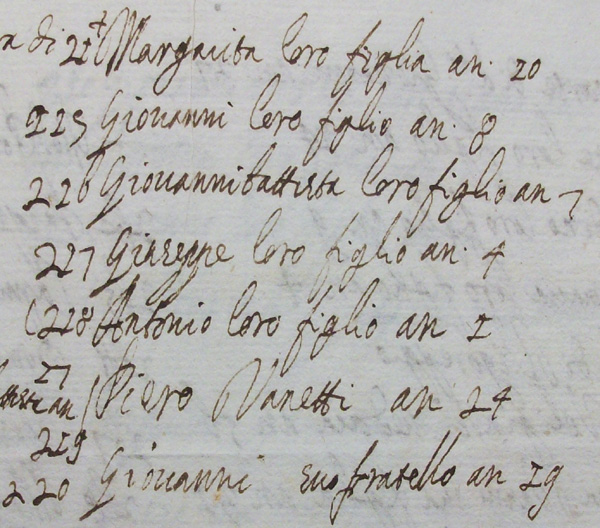 a di 22† Margarita loro figlia an: 10
225 Giovanni loro figlio an: 8
226 Giovannibattista loro figlio an 7
227 Giuseppe loro figlio an: 4
228 Antonio loro figlio an 2
27
an Piero Vanetti an 24
229
220 Giovanni suo fratello an 19